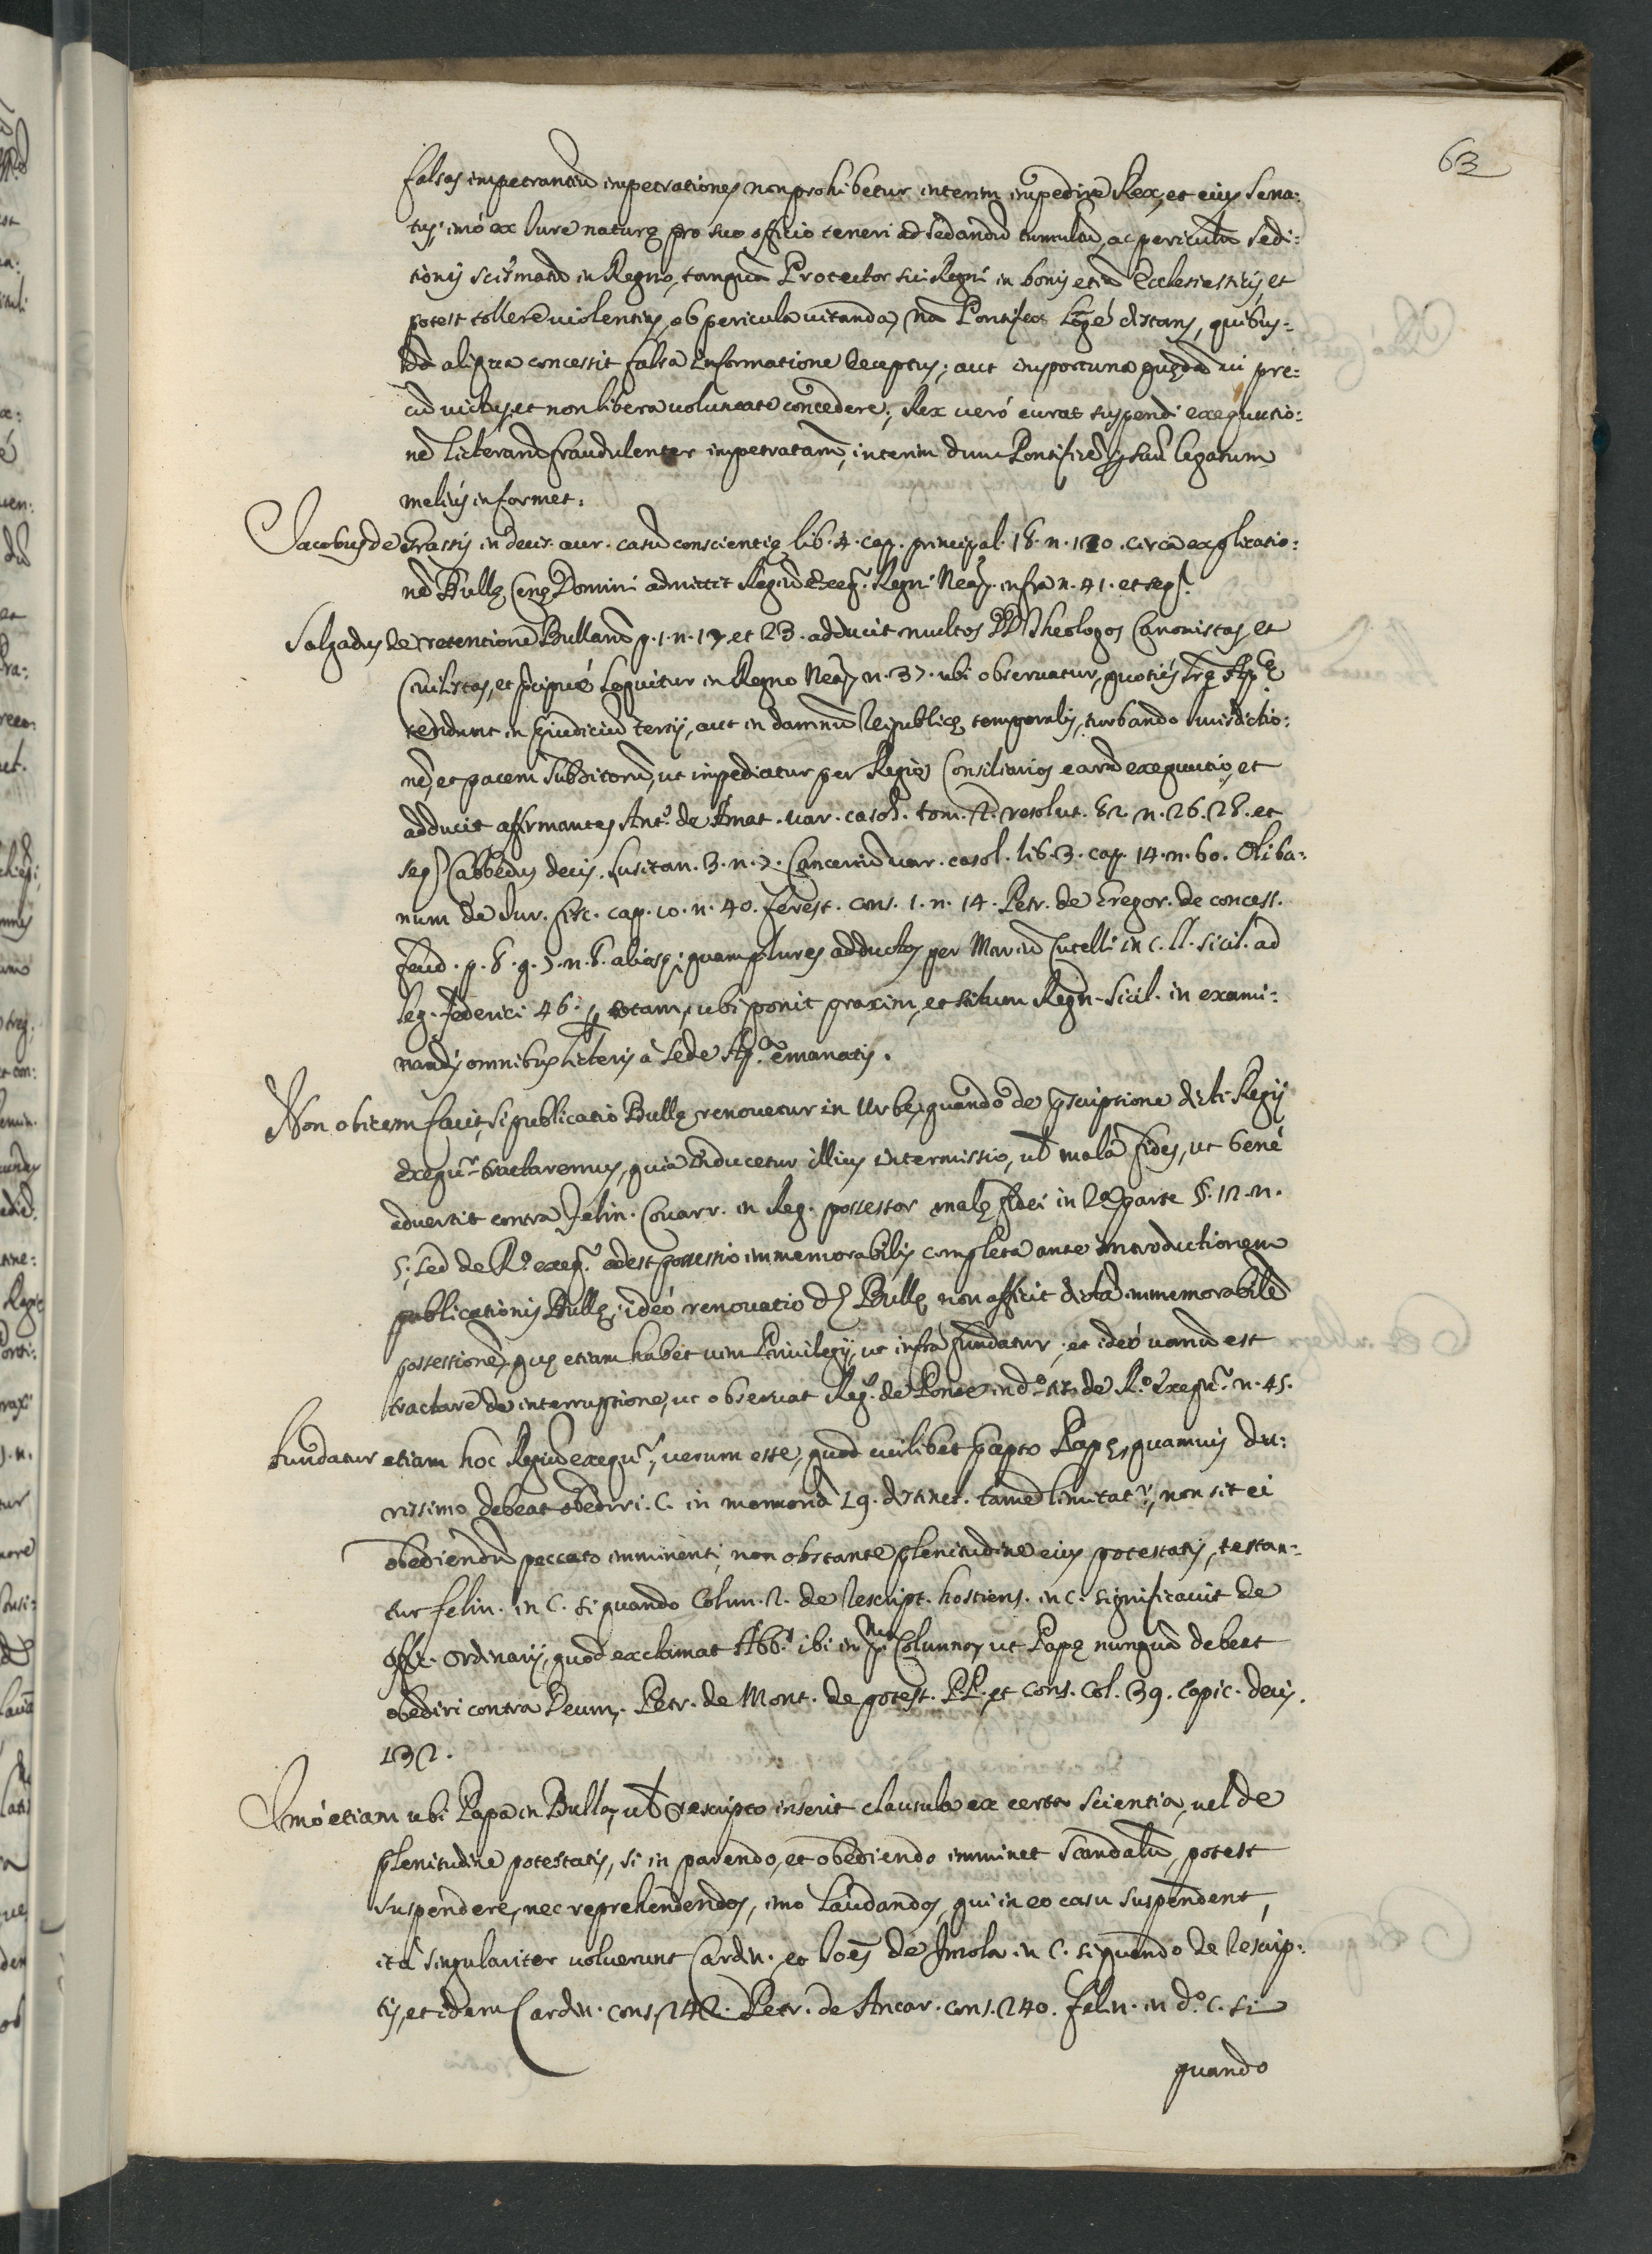 63
falsas impetrantiũ impetrationes non prohibetur interim impedire Rex, et eius Sena:
tus; imó ex Iure naturę pro suo officio teneri ad sedandũ tumultũ, ac periculũ sedi:
tionis scismatũ in Regno, tanquã Protector sui Regni in bonis etiã Ecclesiasticis, et
potest tollere violentias, ob pericula vitanda, nã Pontifex Longé distans, quibus:
dã aliqua concessit falsa informatione deceptus; aut importuna quędã vi pre:
cũ victus, et non libera voluntate concedere; Rex veró curat suspendi exequutio:
nẽ licterarũ fraudulenter impetratarũ, interim dum Pontificẽ legatum
melius informet.
Iacobus de Grassis in decis. aur. casũ conscientię lib. 4. cap. principal. 18. n. 120. circa explicatio:
nẽ Bullę Cęnę Domini admittit Regiũ Exeq.r Regni Neap. infra n. 41. et seq.
Salgadus de retentione Bullarũ p. 1. n. 17. et 23. adducit multos DD. Theologos Canonistas, et
Civilistas, et pcipué loquitur in Regno Neap. n. 37. ubi observatur, quoties lrę Ap.cę
tendunt in pjudiciũ tertij, aut in damnũ Reipublicę temporalis, turbando iurisdictio:
nẽ, et pacem subditorũ, ut impediatur per Regios Consiliarios earũ exequutio, et
adducit affirmantes Ant.m de Amat. var. casol. tom. 2. resolut. 82. n. 26. 28. et
seq. Cabbedus decis. Lusitan. 3. n. 7. Canceriũ var. casol. lib. 3. cap. 14. n. 60. Oliba:
num de Iur. fisc. cap. 10. n. 40. ferest. cons. 1. n. 14. Petr. de Gregor. de concess.
feud. p. 8. q. 7. n. 8. aliasq; quamplures adductos per Mariũ Cutelli in C. ll. sicil. ad
leg. federici 46. p totam, ubi ponit praxim, et stilum Regn. Sicil. in exami:
nandis omnibus licteris à Sede Ap.ca emanatis.
Non obicem facit, si publicatio Bullę renovetur in Urbe, quando de pscriptione dicti Regij
exequ.r tractaremus, quia inducetur illius intermissio, ul mala fides, ut bené
advertit contra Felin. Covarr. in Reg. possessor malę fidei in 2.a parte §. 12. n.
5. sed de R.o exeq.r adest possessio immemorabilis completa ante introductionem
publicationis Bullę, ideó renovatio d.ę Bullę non afficit dictã immemorabilẽ
possessionẽ, quę etiam habet vim Privilegij, ut infrà fundatur, et ideó vanũ est
tractare de interruptione, ut observat Reg. de Ponte in d.o tt. de R.o Exequ.r n. 45.
fundatur etiam hoc Regiũ exequ.r, verum esse, quod cuilibet pcepto Papę, quamvis du:
rissimo debeat obediri. C. in memoriã 19. distinct. tamẽ limitat.r, non sit ei
obediendũ peccato imminenti, non obstante plenitudine eius potestatis, testan:
tur felin. in C. si quando Colum. 2. de Rescript. hostiens. in C. significavit de
offic. Ordinarij, quod exclamat Abb.s ibi in Columna, ut Papę nunquã debeat
obediri contra Deum. Petr. de Mont. de potest. PP. et Cons. Col. 39. capic. decis.
132.
Imó etiam ubi Papa in Bulla, ul rescripto inserit clausula ex certa scientia, vel de
plenitudine potestatis, si in parendo, et obediendo imminet scandalũ, potest
suspendere, nec reprehendendos, imó laudandos, qui in eo casu suspendent,
ità singulariter voluerunt Cardin. et Ioẽs de Imola in C. si quando de Rescrip:
tis, et idem Cardin. cons. 142. Petr. de Ancar. cons. 240. felin. in d.o c. si
quando